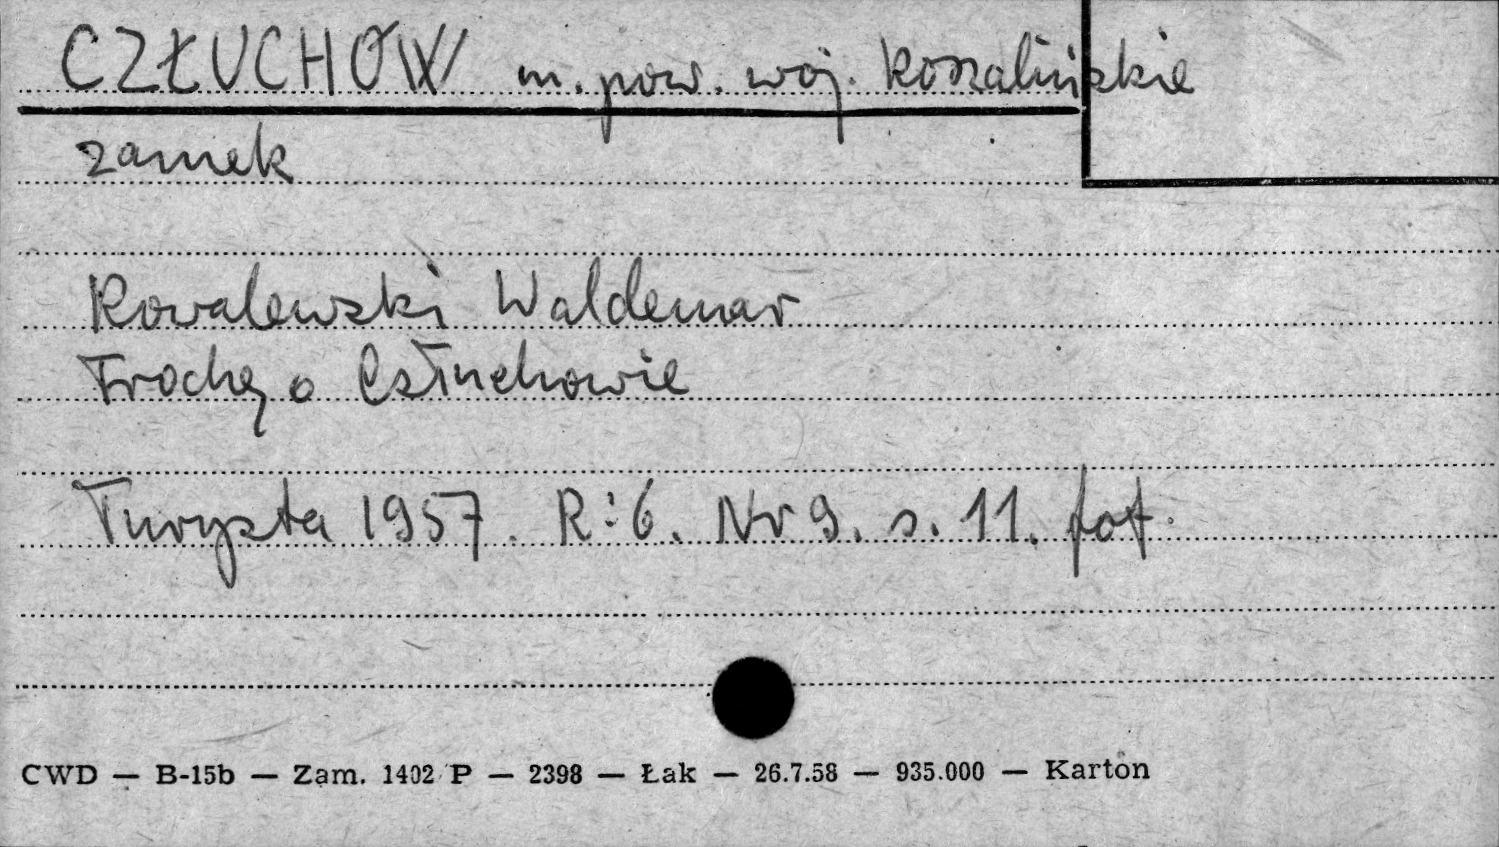 CZŁUCHÓW m. pow. woj. koszalińskie
zamek
Kowalewski Waldemar
Trochę o Człuchowie
Turysta 1957. R: 6. Nr 9. s. 11. fot.
CWD — B-15b — Zam. 1402 P — 2398 — Łak — 26.7.58 — 935.000 — Karton